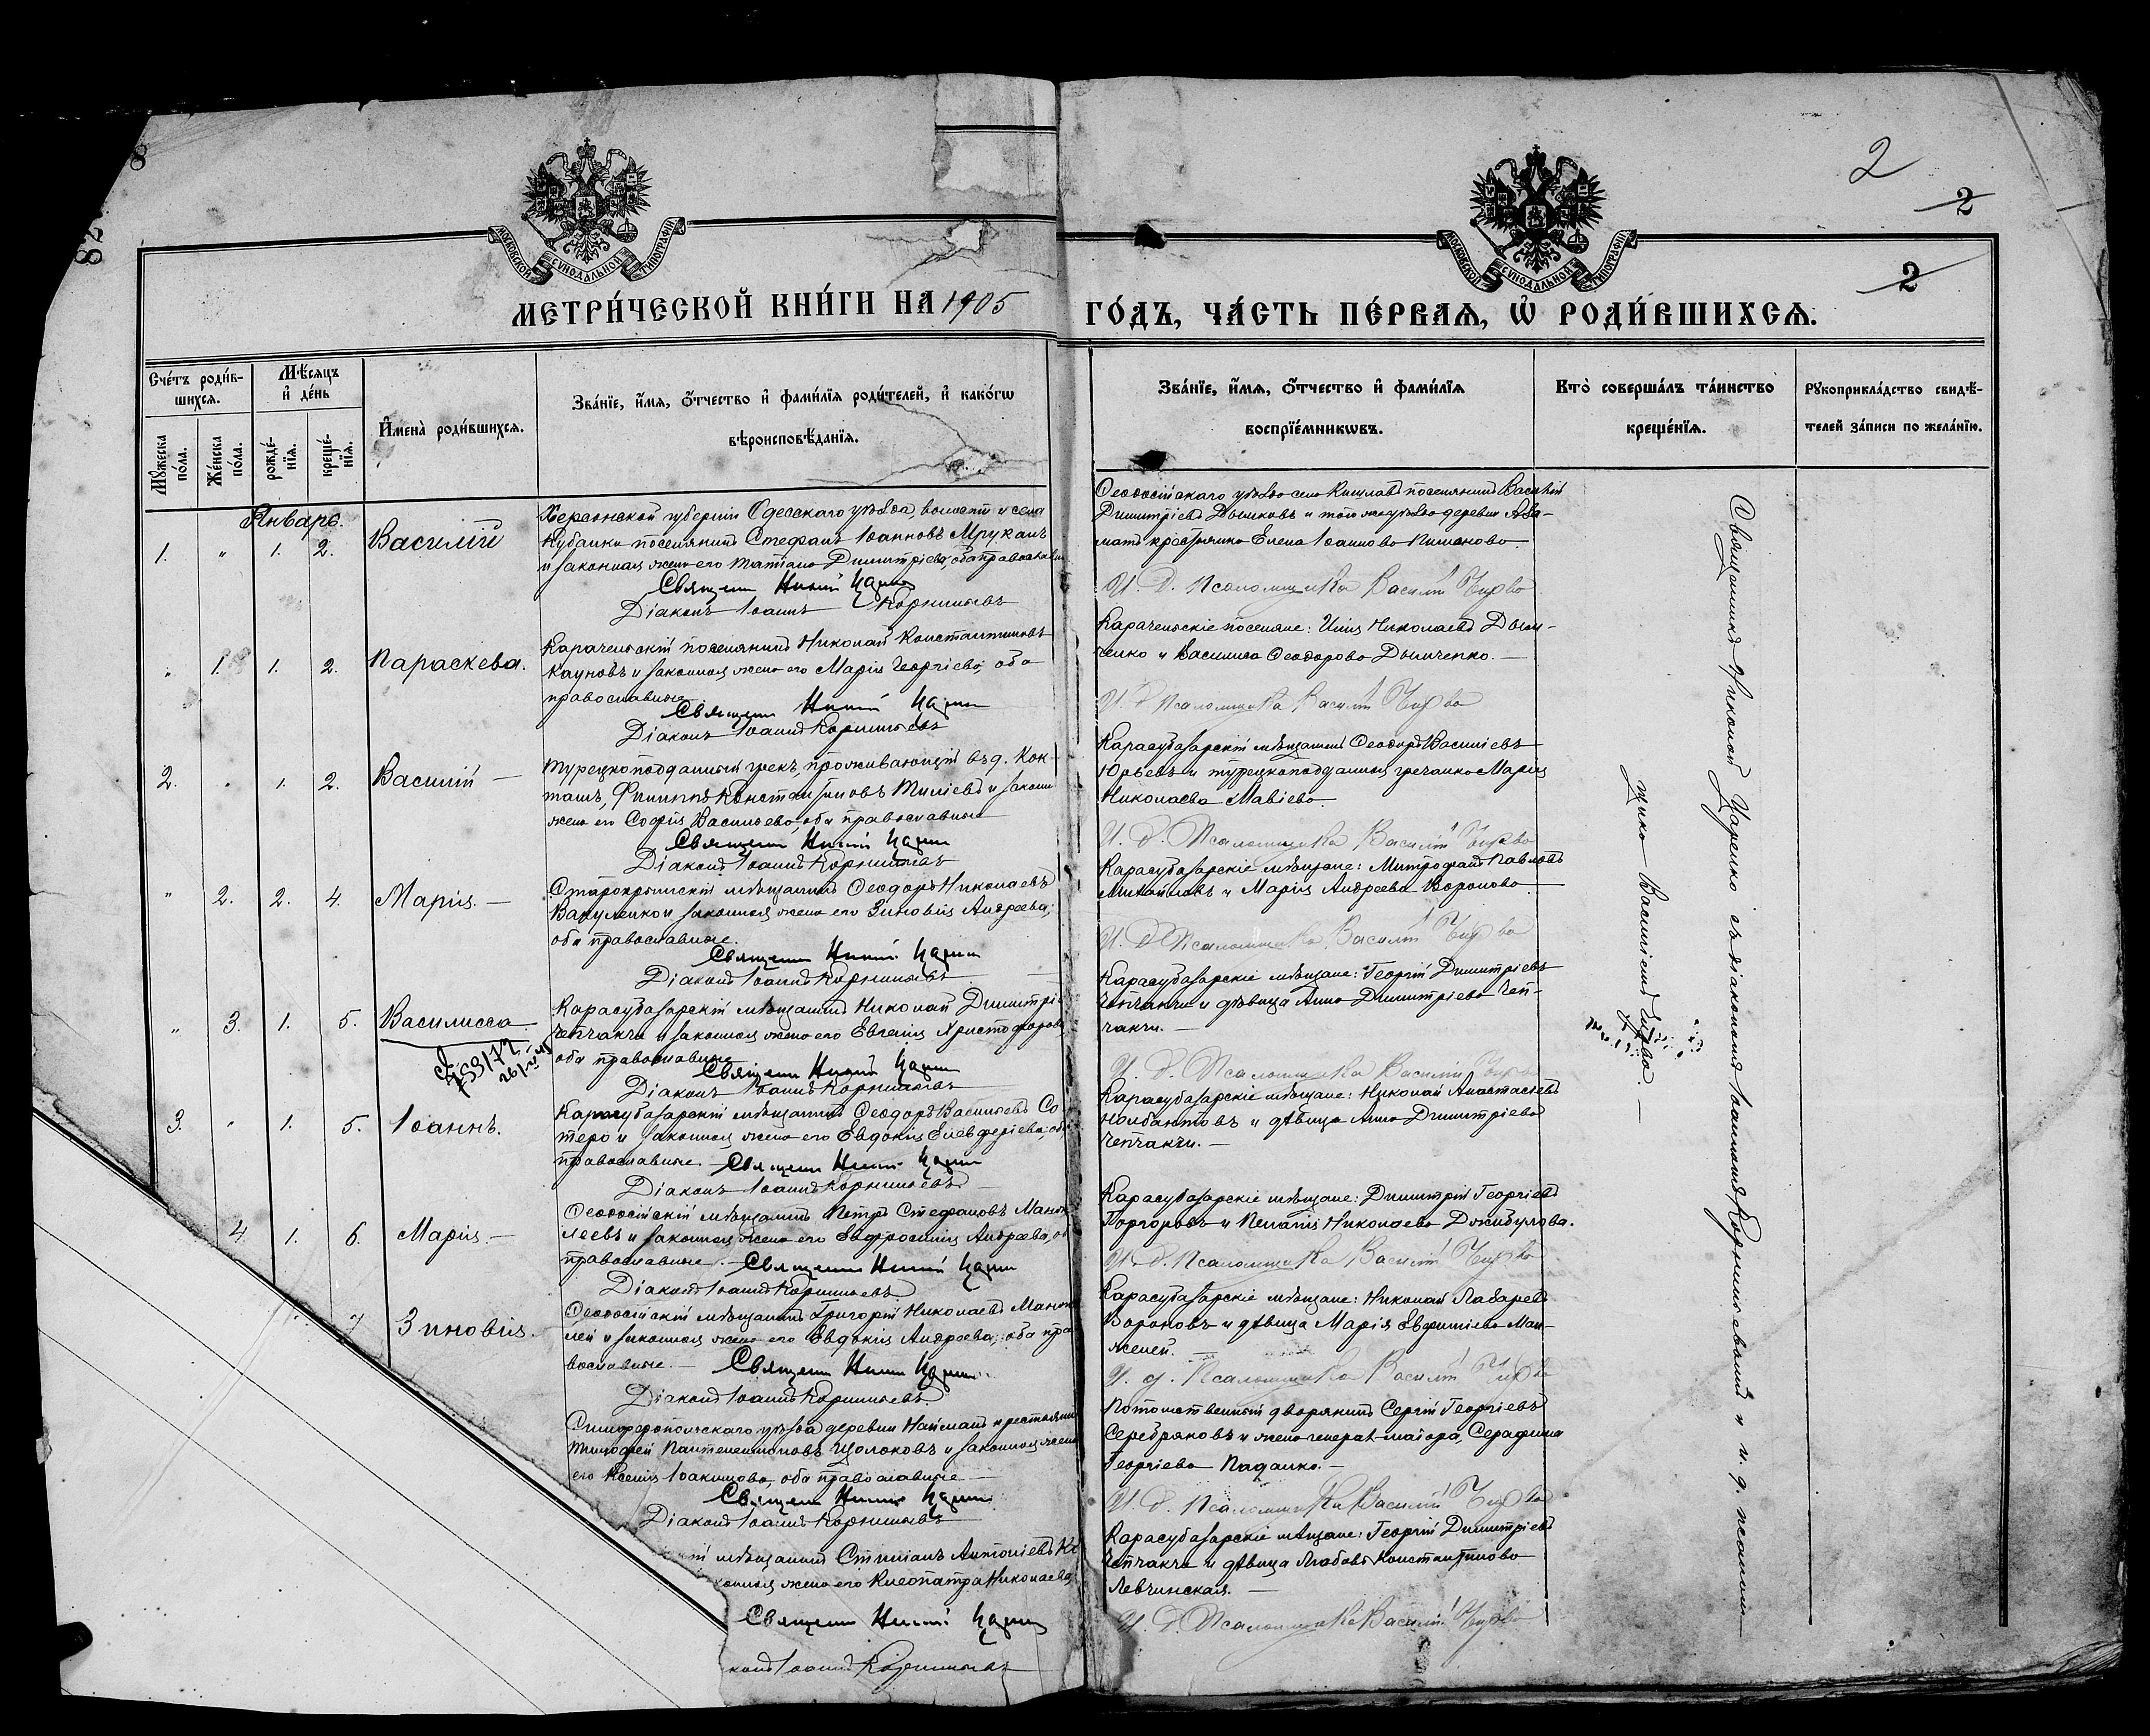 2
2
2
МОСКОВСКОЙ СѴНОДАЛЬНОЙ ТИПОГРАФІИ
МОСКОВСКОЙ СѴНОДАЛЬНОЙ ТИПОГРАФІИ
МЕТРИ́ЧЕСКОЙ КНИ́ГИ НА 1905
ГО́ДЪ, ЧА́СТЬ ПЕ́РВАЯ, Ѽ РОДИ́ВШИХСЯ.
Сче́тъ роди́в-
шихся.
Мѣ́сяцъ
и҆ де́нь
И҆мена̀ роди́вшихся.
Зва́нїе, и҆́мя, ѻ҆́тчество и҆ фами́лїя роди́телей, и҆ како́гѡ
вѣроисповѣ́данїя.
Мꙋ́жеска
по́ла.
Же́нска
по́ла.
рожде́-
нїя.
креще́-
нїя.
Зва́нїе, и҆́мя, ѻ҆́тчество и҆ фами́лїя
воспрїе́мникѡвъ.
Кто̀ соверша́лъ та́инство
креще́нїя.
Рꙋкоприкла́дство свидѣ́-
телей за́писи по жела́нїю.
Январь.
1. " 1. 2. Василій
Херсонской губерніи Одесскаго уѣзда, волости и села
Кубанки поселянинъ Стефанъ Іоанновъ Мруканъ
и законная жена его Татіана Димитріева, оба православн
Священ Никол Царен
Діаконъ Іоаннъ Корнильевъ
Ѳеодосійскаго уѣзда села Кишлавъ поселянинъ Василій
Димитріевъ Дымковъ и того же уѣзда деревни Аза-
матъ крестьянка Елена Іоаннова
И. д. Псаломщика Василій Чирва
" 1. 1. 2. Параскева.
поселянинъ Николай Константиновъ
Кауновъ и законная жена его Марія Георгіева, оба
православные.
Священ Никол Царен
Діаконъ Іоаннъ Корнильевъ
поселяне: Илія Николаевъ Дым-
ченко и Василиса Ѳеодорова Дымченко.—
И. д. Псаломщика Василій Чирва
2. " 1. 2. Василій —
Турецкоподданный грекъ, проживающій въ д. Кок-
ташъ, Филиппъ Константиновъ Тиліевъ и законн
жена его Софія Васильева, оба православные
Священ Никол Царен
Діаконъ Іоаннъ Корнильевъ
Карасубазарскій мѣщанинъ Ѳеодоръ Васильевъ
Юрьевъ и турецкоподданная гречанка Марія
Николаева Мавіева.
И. д. Псаломщика Василій Чирва
" 2. 2. 4. Марія. —
Старокрымскій мѣщанинъ Ѳеодоръ Николаевъ
Вакуленко и законная жена его Зиновія Андреева;
оба православные.
Священ Никол Царен
Діаконъ Іоаннъ Корнильевъ
Карасубазарскіе мѣщане: Митрофанъ Павловъ
Михайловъ и Марія Андреева Воронова.
И. д. Псаломщика Василій Чирва
" 3. 1. 5. Василисса
Карасубазарскій мѣщанинъ Николай Димитрі
Чепчакчи и законная жена его Евгенія Христофорова,
оба православные
Священ Никол Царен
Діаконъ Іоаннъ Корнильевъ
Карасубазарскіе мѣщане: Георгій Димитріевъ
Чепчакчи и дѣвица Анна Димитріева Чеп-
чакчи. —
И. д. Псаломщика Василій Чирва
3. " 1. 5. Іоаннъ.
Карасубазарскій мѣщанинъ Ѳеодоръ Васильевъ Со-
теро и законная жена его Евдокія Елевферіева, об
православные. Священ Никол Царен
Діаконъ Іоаннъ Корнильевъ
Карасубазарскіе мѣщане: Николай Анастасьевъ
и дѣвица Анна Димитріева
Чепчакчи. —
4 1. 6. Марія. —
Ѳеодосійскій мѣщанинъ Петръ Стефановъ Манже
леевъ и законная жена его Евфросинія Андреева, об
православные. — Священ Никол Царен
Діаконъ Іоаннъ Корнильевъ
Карасубазарскіе мѣщане: Димитрій Георгіевъ
и Пелагія Николаева Джибулова.
И. д. Псаломщика Василій Чирва
7 Зиновія.
Ѳеодосійскій мѣщанинъ Григорій Николаевъ Манже
лей и законная жена его Евдокія Андреева; оба пра
вославные. — Священ Никол Царен
Діаконъ Іоаннъ Корнильевъ
Карасубазарскіе мѣщане: Николай Лазаревъ
Вороновъ и дѣвица Марія Евфиміева Ман-
желей.
И. д. Псаломщика Василій Чирва
Симферопольскаго уѣзда деревни Найманъ крестьянин
Тимофей Пантелеимоновъ Щолоковъ и законная жена
его Ксенія Іоакимова, оба православные
Священ Никол Царен
Діаконъ Іоаннъ Корнильевъ
Потомственный дворянинъ Сергій Георгіевъ
Серебряковъ и жена генералъ-маіора, Серафима
Георгіева Падалка. —
И. д. Псаломщика Василій Чирва
мѣщанинъ Стиліанъ Антоніевъ
конная жена его Клеопатра Николаева,
Священ Никол Царен
конъ Іоаннъ Корнильевъ
Карасубазарскіе мѣщане: Георгій Димитріевъ
Чепчакчи и дѣвица Любовь Константинова
Левчинская. —
И. д. Псаломщика Василій Чирва
Священникъ Николай Царенко съ діакономъ Іоанномъ Корнильевымъ и и. д. псалом—
щика — Василіемъ Чирва —